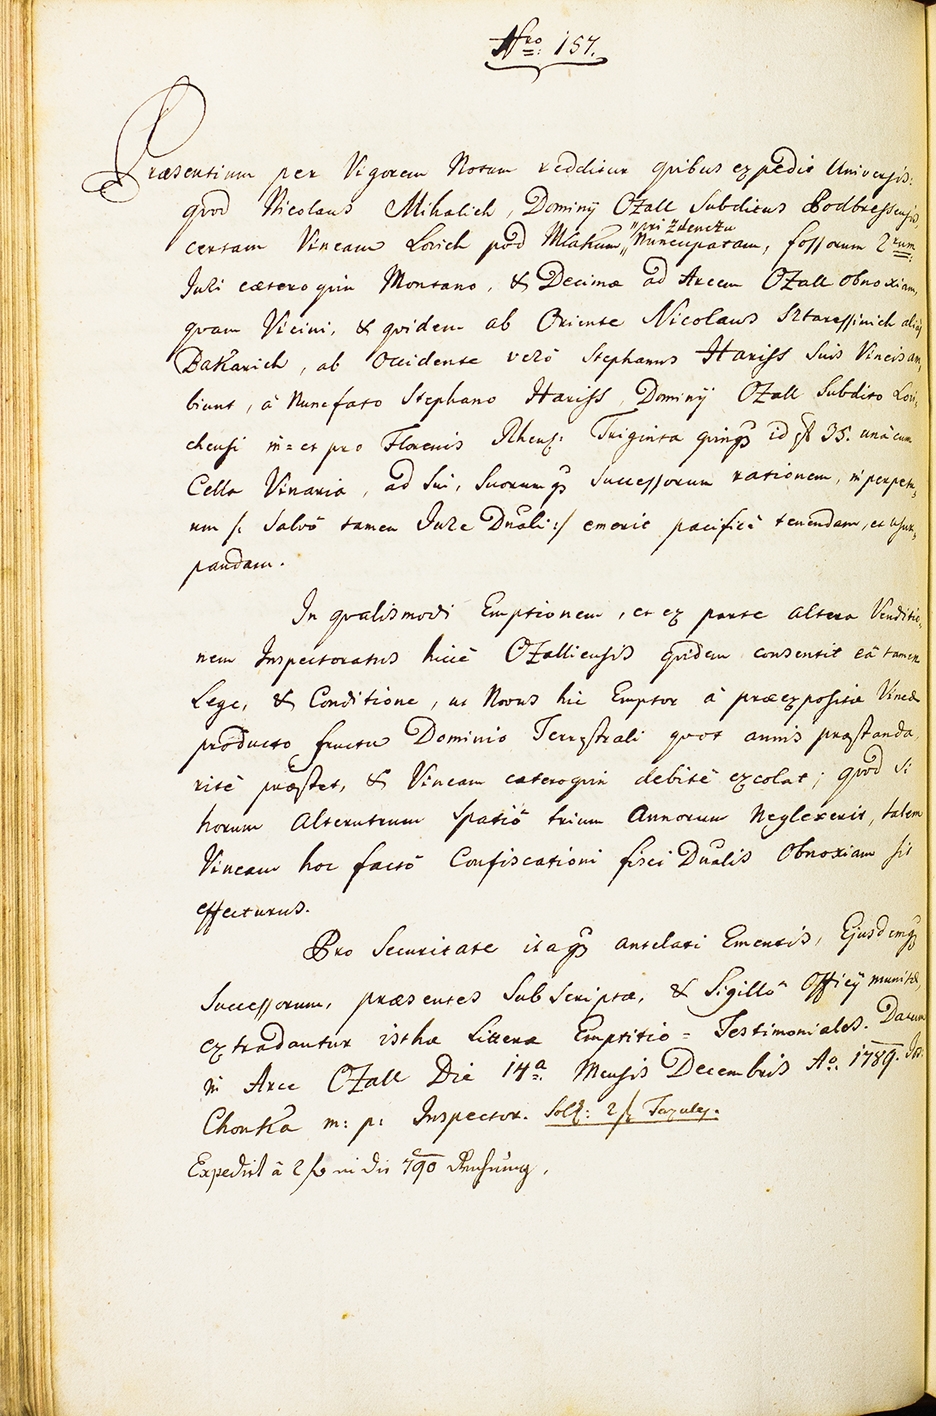 Nro: 157.
Præsentium per Vigorem Notum redditur quibus expedit Universis:
quod Nicolaus Mihalich, Dominÿ Ozall Subditus Podbressensis,
"pri Zdenczu
certam Vineam Lovich pod Mlakum „ Nuncupatam, fossorum 2rum
Juri cæteroquin Montano, & Decimæ ad Arcem Ozall obnoxiam,
quam Vicini, & quidem ab Oriente Nicolaus Sztaressinich alias
Bakarich, ab Occidente verò Stephanus Hariss Suis Vineis am,
biunt, à Nunefato Stephano Hariss, Dominÿ Ozall Subdito Lovi,
chensi in= et pro Florenis Rhens: Triginta quinqs id est 35. unà cum
Cella Vinaria, ad Sui, Suorumqs Successorum rationem, in perpetu,
um /: Salvô tamen Jure Duali :/ emerit pacificè tenendam, et usur,
pandam.
In qualismodi Emptionem, et ex parte altera Venditio,
nem Inspectoratus hicce Ozalliensis quidem consentit eâ tamen
Lege, & Conditione, ut Novus hic Emptor à præexposita Vinea
producto fructu Dominio Terrestrali quot annis præstanda
ritè præstet, & Vineam cæteroquin debitè excolat; quod si
horum Alterutrum Spatiô trium Annorum Neglexerit, talem
Vineam hoc factô Confiscationi fisci Dualis Obnoxiam sit
effecturus.
Pro Securitate itaqs antelati Ementis, Ejusdemqs
Successorum, præsentes Subscriptæ, & Sigillô Officÿ munitæ,
extradantur isthæ Litteræ Emptitio = Testimoniales. Datum
in Arce Ozall Die 14a Mensis Decembris Ao. 1789. Jos:
Chonka m: p: Inspector. Solt: 2 f Taxules.
Expedirt à 2 f in die 790 Rechnung.